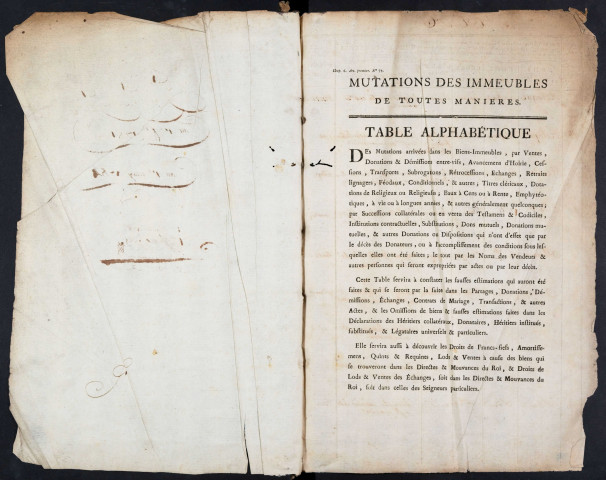 MUTATIONS DES IMMEUBLES
DE TOUTES MANIERES.
TABLE ALPHABÉTIQUE
DES Mutations arrivées dans les Biens-Immeubles, par Ventes,
Donations & Démissions entre-vifs, Avancement d'Hoirie, Ces-
sions, Transports, Subrogations, Rétrocessions, Echanges, Retraits
lignagers, Féodaux, Conditionnels, & autres; Titres cléricaux, Dota-
tions de Religieux ou Religieuse; Baux à Cens ou à Rente, Emphytéo-
tiques, à vie ou à longues années, & autres généralement quelconques;
par Successions collatérales ou en vertu des Testamens & Codiciles,
Institutions contractuelles, Substitutions, Dons mutuels, Donations mu-
tuelles, & autres Donations ou Dispositions qui n'ont d'effet que par
le décès des Donateurs, ou à l'accomplissement des conditions sous les-
quelles elles ont été faites; le tout par les Noms des Vendeurs &
autres personnes qui seront expropriées par actes ou par leur décès.
Cette Table servira à constater les fausses estimations qui auront été
faites & qui se feront par la suite dans les Partages, Donations, Dé-
missions, Échanges, Contrats de Mariage, Transactions, & autres
Actes, & les Omissions de biens & fausses estimations faites dans les
Déclarations des Héritiers collatéraux, Donataires, Héritiers institués,
substitués, & Légataires universels & particuliers.
Elle servira aussi à découvrir les Droits de Francs-fiefs, Amortisse-
mens, Quints & Requints, Lods & Ventes à cause des biens qui
se trouveront dans les Directes & Mouvances du Roi, & Droits de
Lods & Ventes des Échanges, soit dans les Directes & Mouvances du
Roi, soit dans celles des Seigneurs particuliers.